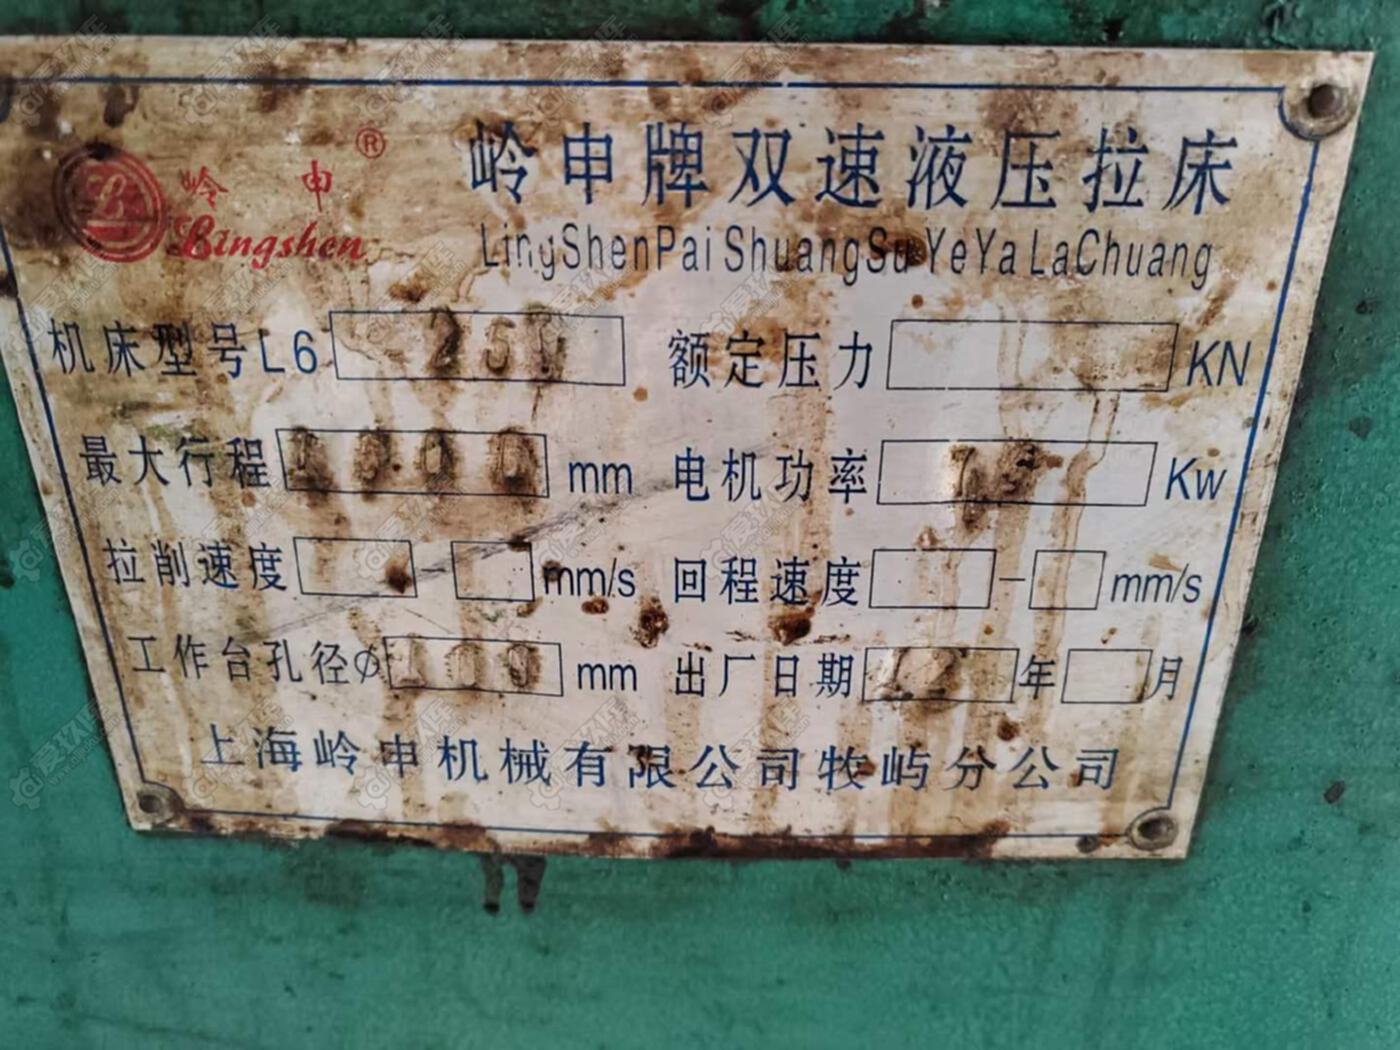 岭申® 岭申牌双速液压拉床
Lingshen LingShenPai ShuangSu YeYa LaChuang
机床型号L6 25 额定压力 KN
最大行程 1000 mm 电机功率 15 Kw
拉削速度 - mm/s 回程速度 - mm/s
工作台孔径φ 100 mm 出厂日期 12 年 月
上海岭申机械有限公司牧屿分公司